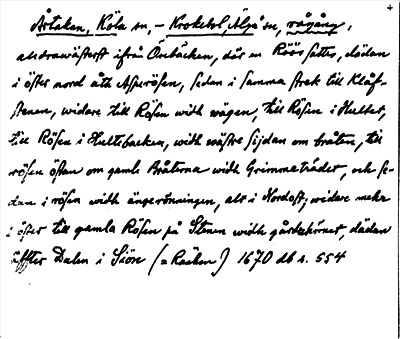 Årtaken, Köla sn, – Kroketorp, Älgå sn, rågång,
alldrawästerst ifrån Örebäcken, där en Röös sattes, dädan
i öster nord åth Asperösen, sedan i samma strek till Klåf-
stenen, widare till Rösen widh wägen, till Rösen i Hultet,
till Rösen i Hultebacken, widh wästre sijdan om bråten, till
rösen östan om gamle Bråterna widh Grimmeträdet, och se-
dan i rösen widh ängerönningen, alt i Nordost; widare mehr
i öster till gamla Rösen på Stenen widh gårdzhörnet, dädan
äffter Dalen i Siön (= Räcken) 1670 db s. 554